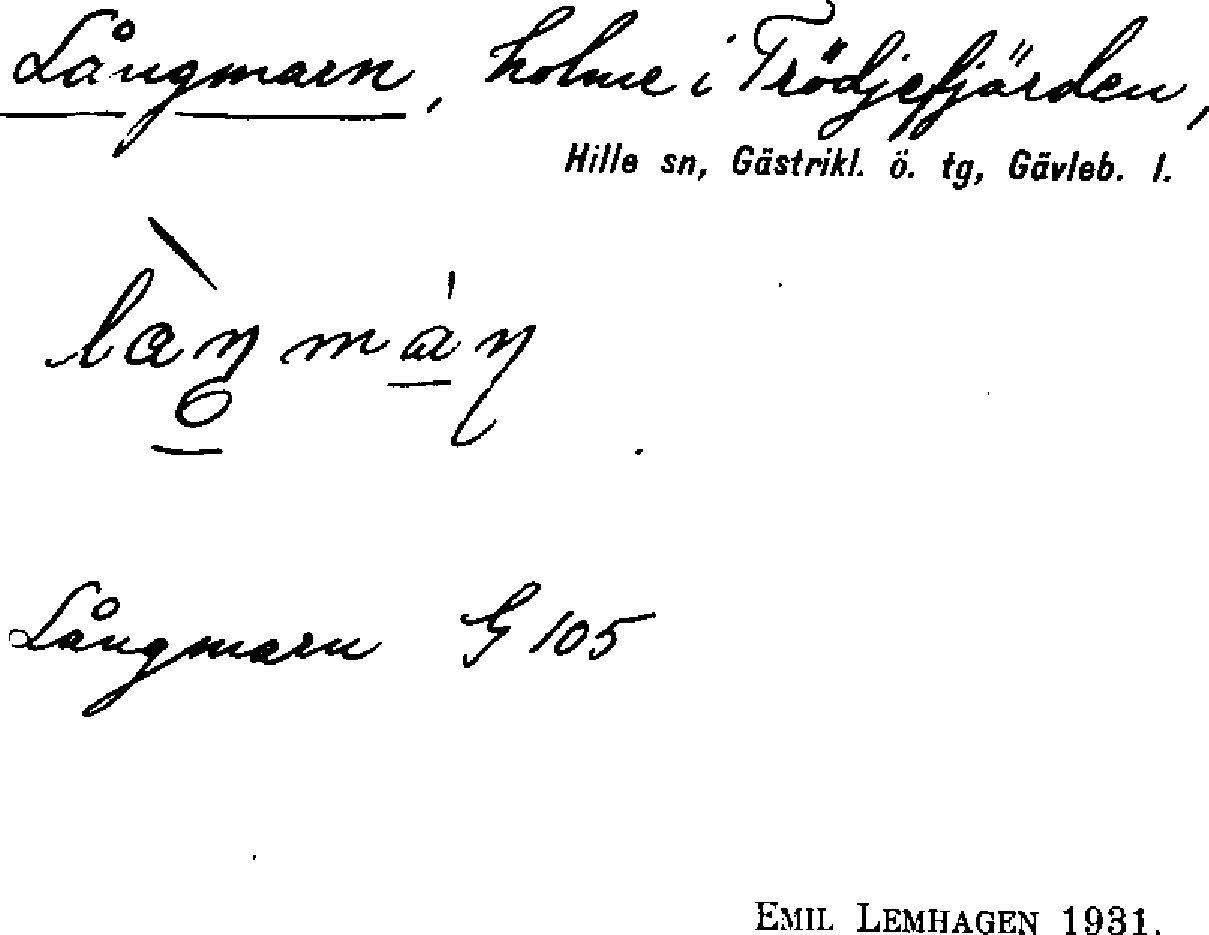 Långmarn, holme i Trödjefjärden,
Hille sn, Gästrikl. ö. tg, Gävleb. l.
Långmarn G 105
EMIL LEMHAGEN 1931.